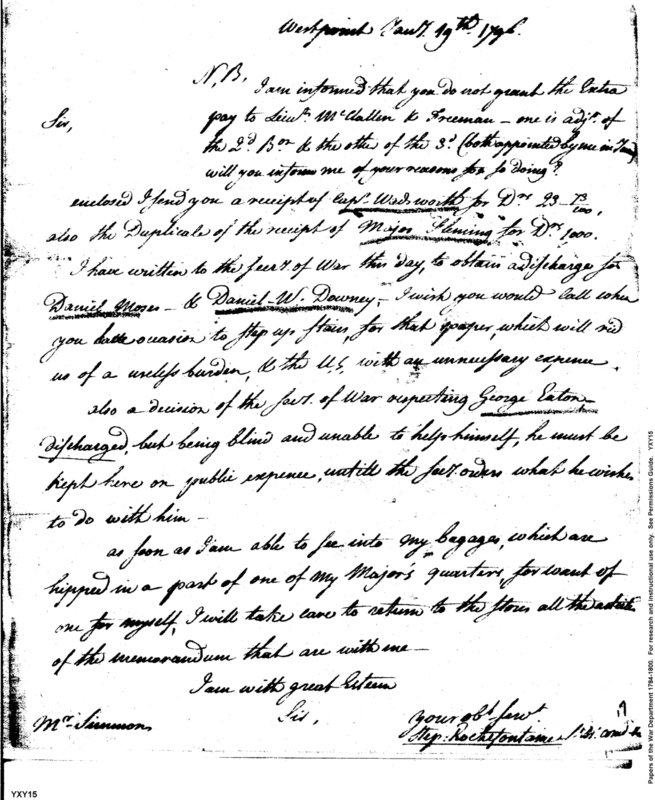 Westpoint Jany. 19th 1796.
N.B. I am informed that you do not grant the Extra
Sir, pay to Lieuts. McClallen & Freeman – one is adjt. of
the 2d. Bon & the other of the 3d. (both appointed by me in
will you inform me of your reasons for so doing?
enclosed I send you a receipt of Capt. Wadsworth for Drs 23 73/100,
also the Duplicate of the receipt of Major Fleming for Drs 1000.
I have written to the secry. of War this day, to obtain a discharge for
Daniel Moses – & Daniel W. Downey – I wish you would call when
you have occasion to step up stairs, for that paper, which will rid
us of a useless burden, & the U.S. with an unnecessary expence.
also a decision of the secry. of War respecting George Eaton
discharged, but being blind and unable to help himself, he must be
kept here on public expence, untill the secry. orders what he wishes
to do with him –
as soon as I am able to see into my bagages, which are
hipped in a part of one of my Major's quarters, for want of
one for myself, I will take care to return to the stores all the
of the memorandum that are with me –
I am with great Esteem
Sir,
your obt. servt.
Mr. Simmons
Step: Rochefontaine
YXY15
Papers of the War Department 1784-1800. For research and instructional use only. See Permissions Guide. YXY15